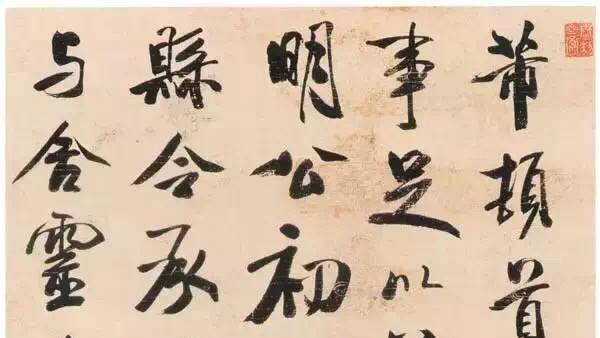 芾頓首
事足以
明公初
縣令承
与舍靈